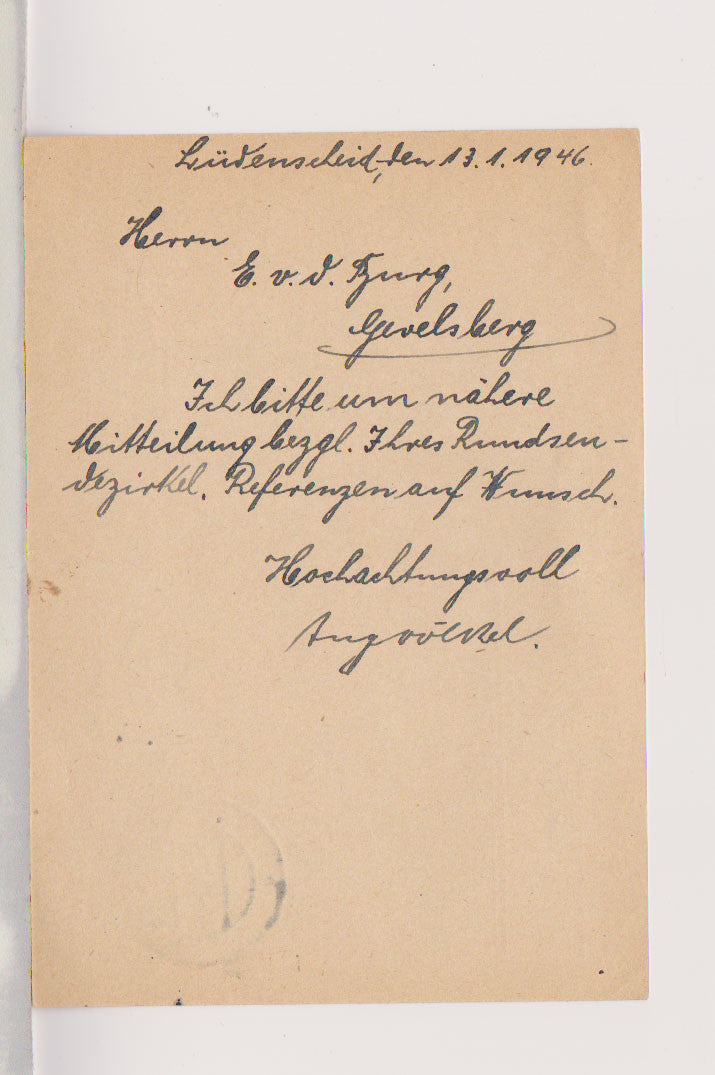 Lüdenscheid, den 13.1.1946.
Herrn
E. v. d. Burg,
Gevelsberg
Ich bitte um nähere
Mitteilung bezgl. Ihres Rundsen-
dezirkel. Referenzen auf Wunsch.
Hochachtungsvoll
Aug Völkel.